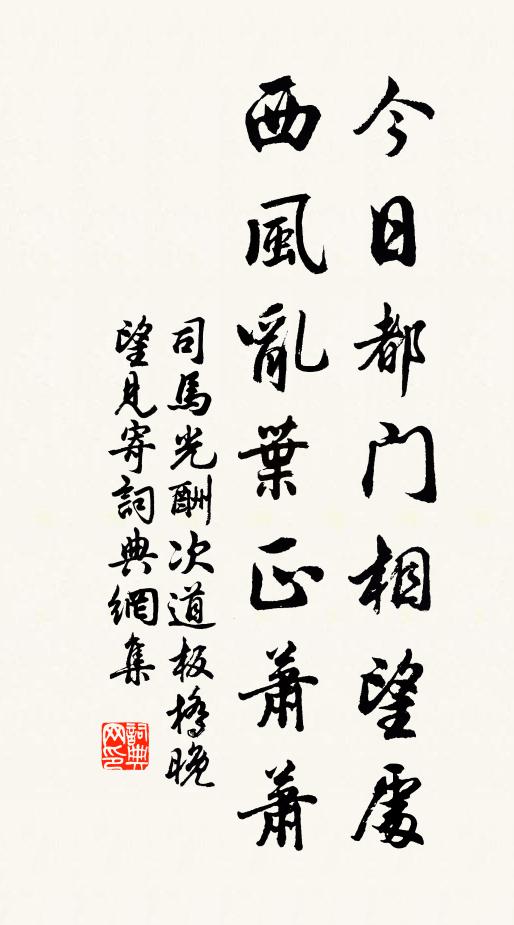 今日都門相望處
西風亂葉正蕭蕭
司馬光酬次道板橋晚
望見寄詞典網集
詞典
网印